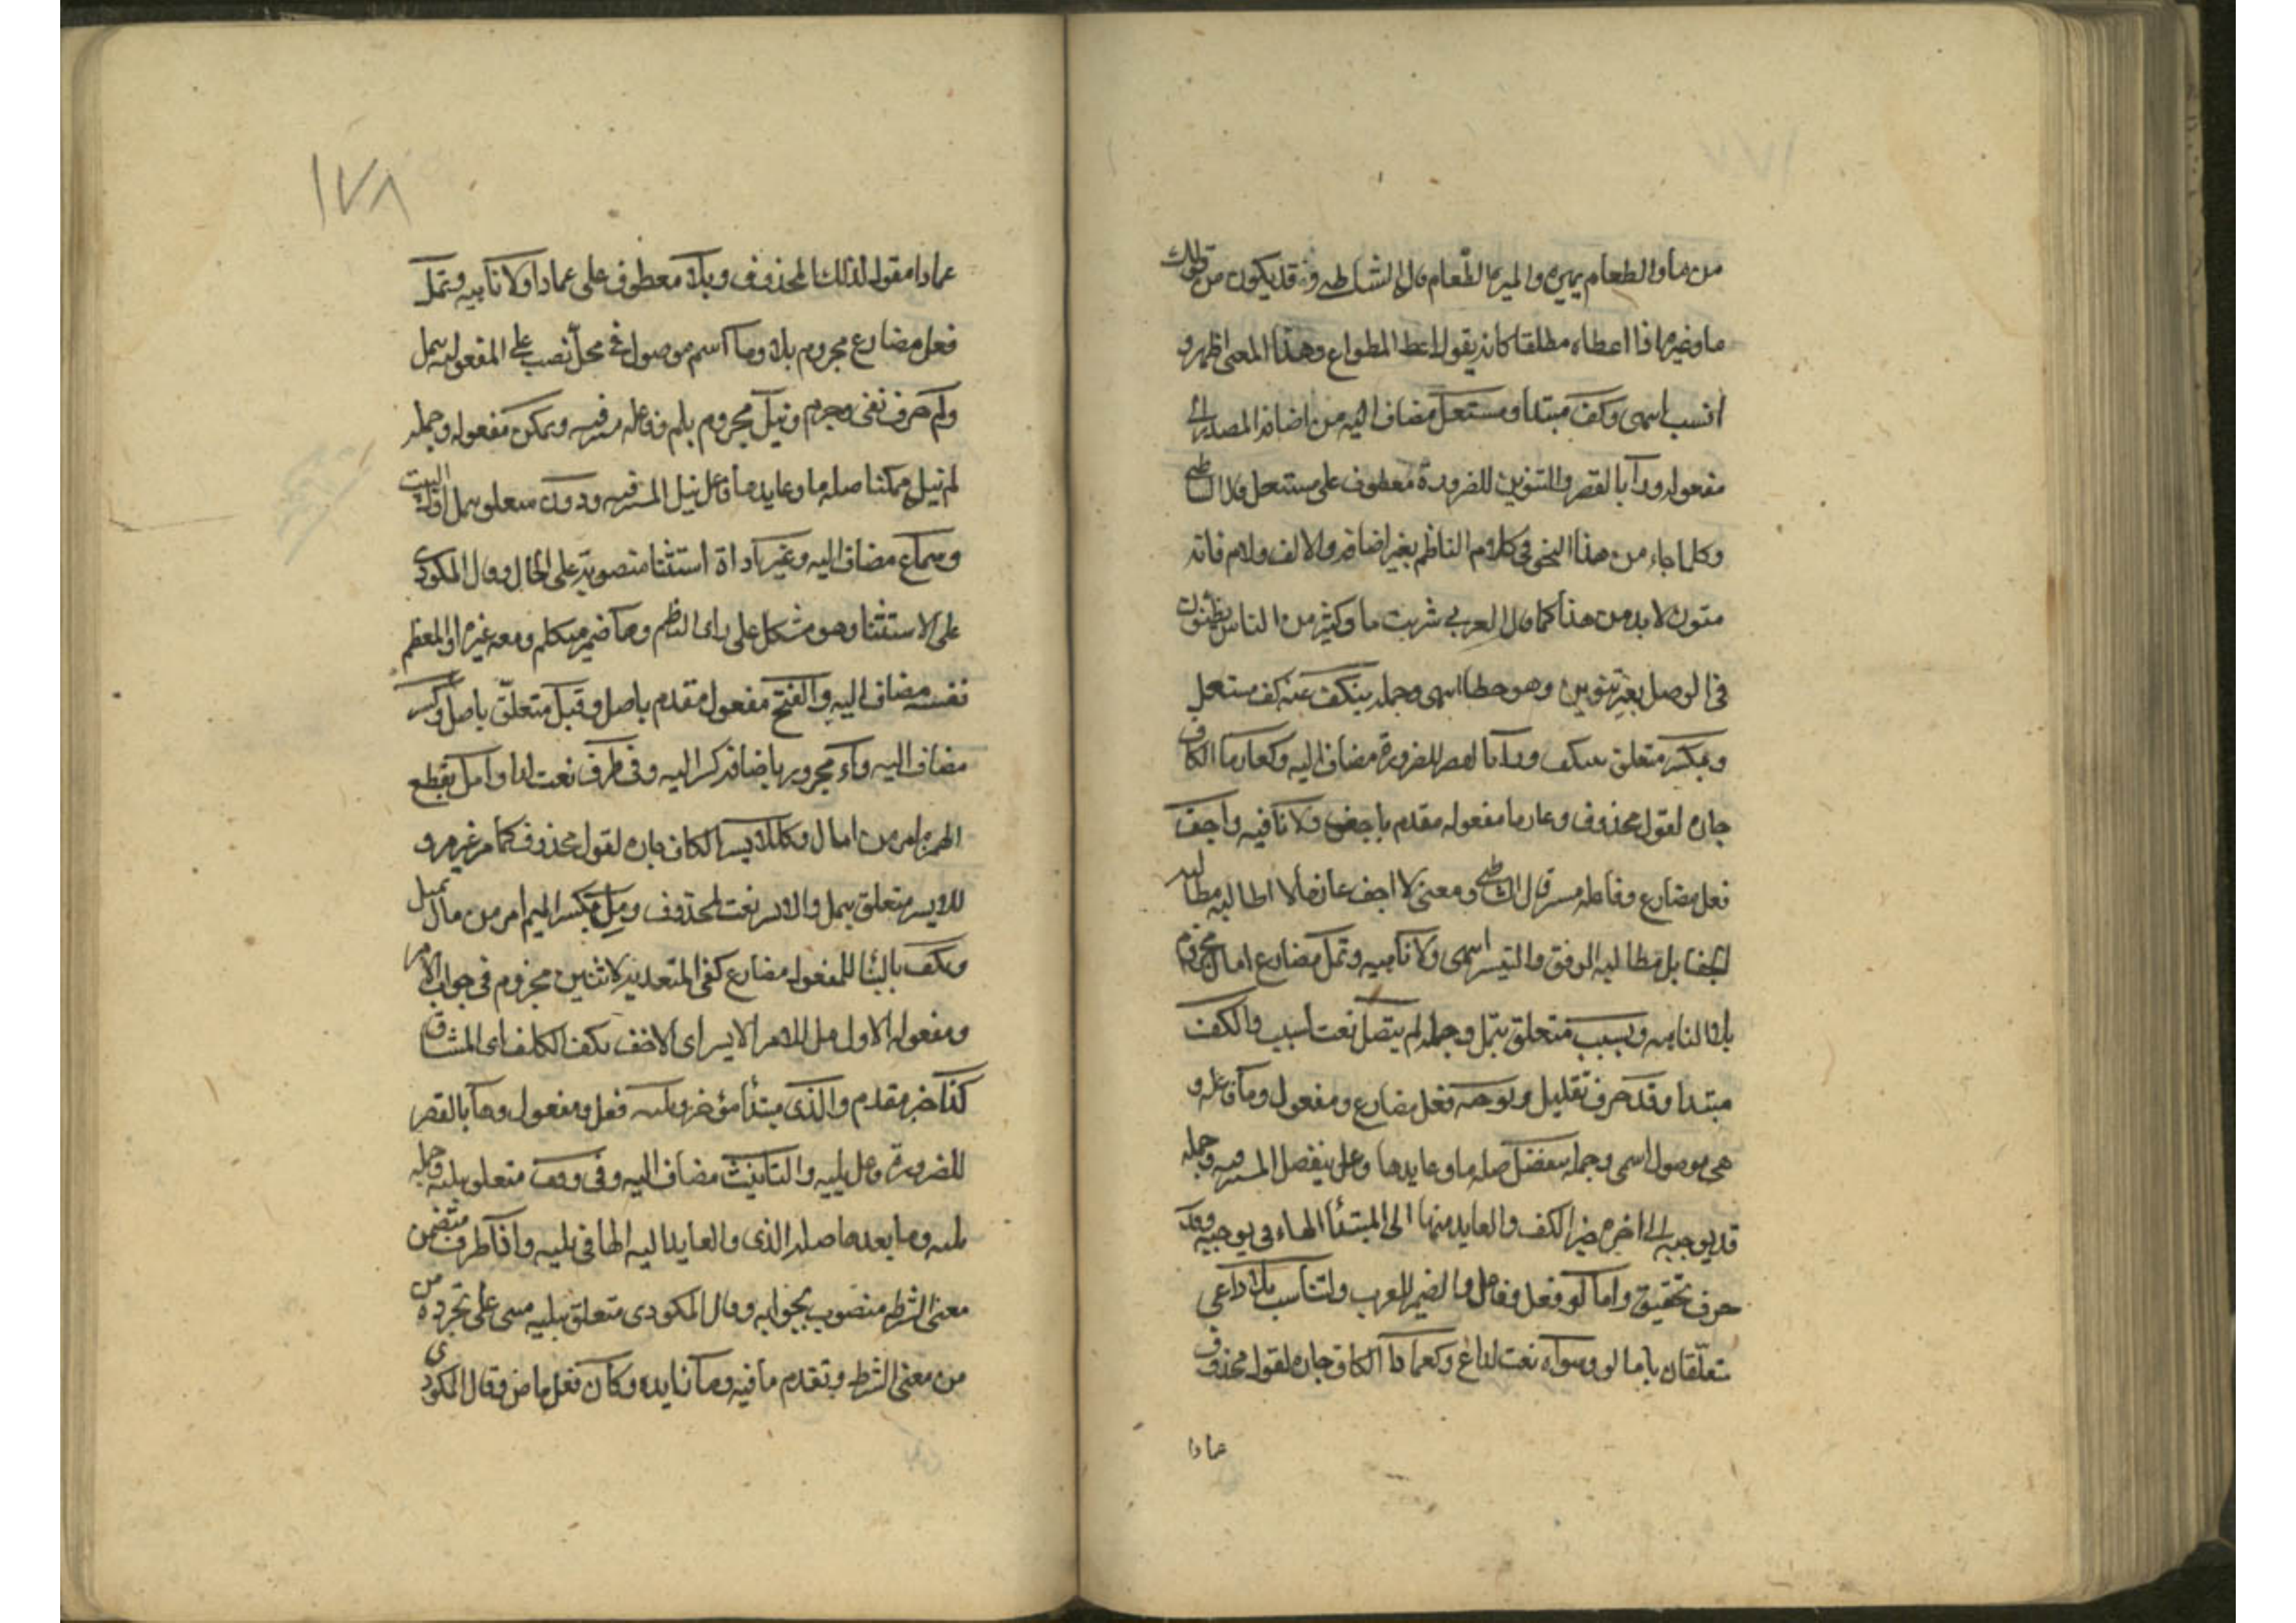 من مار والطعام يميره والميرة الطعام قال الشاطبي وقد يكون من قولك
مار غيره اذا اعطاه مطلقا كانه يقول اعط المطواع وهذا المعنى اظهر و
انسب اسمى وكف مبتدا ومستعل مضاف اليه من اضافة المصدر الى
مفعوله ورا بالقصر والتنوين للضرورة معطوف على مستعل قال الشاطبي
وكلما جاء من هذا النحو في كلام الناظم بغير اضافة ولا الف ولام فانه
منون لابد من هذا كما قال العربي شربت ما وكثير من الناس يظنون
في الوصل بغير تنوين وهو خطا اسمى وجملة ينكف عنه كف مستعل
وبكسر متعلق بينكف ورا بالقصر للضرورة مضاف اليه وكغارما الكاف
جارة لقول محذوف وغارما مفعول مقدم باجفو ولا نافية واجف
فعل مضارع وفاعله مستتر قال الشاطبي ومعنى لا اجف غارما لا اطالبه مطالبة
الجفا بل مطالبة الرفق والتيسير اسمى ولا ناهية وتمل مضارع امال مجزوم
بلا الناهية ولسبب متعلق بتمل وجملة لم يتصل نعت لسبب والكف
مبتدا وقد حرف تقليل ويوجبه فعل مضارع ومفعول وما فاعله و
هي موصول اسمى وجملة ينفصل صلة ما وعايدها فاعل ينفصل المستتر فيه وجملة
قد يوجبه الى اخره خبر الكف والعايد منها الى المبتدأ الهاء في يوجبه وقد
حرف تحقيق وامالوا فعل وفاعل والضمير للعرب ولتناسب بلا داعي
متعلقان بامالوا وسواه نعت لداع وكعمادا الكاف جارة لقول محذوف
عمادا
١٧٨
عمادا مقول لذلك المحذوف وبلا معطوف على عمادا ولا ناهية وتمل
فعل مضارع مجزوم بلا وما اسم موصول في محل نصب على المفعولية بتمل
ولم حرف نفي وجزم وينل مجزوم بلم وفاعله مستتر فيه وتمكن مفعوله وجملة
لم ينل تمكنا صلة ما وعايدها فاعل ينل المستتر فيه ودون متعلق بتمل اول البيت
وسماع مضاف اليه وغير اداة استثنا منصوبة على الحال وقال المكودي
على الاستثنا وهو مشكل على راى الناظم وها ضمير متكلم ومعه غيره او المعظم
نفسه مضاف اليه والفتح مفعول مقدم بامل وقبل متعلق بامل وكسر
مضاف اليه وراء مجرور باضافة كسر اليه وفي طرف نعت لرا وامل بقطع
الهمزة امر من امال وكللايسر الكاف جارة لقول محذوف كما مر غير مرة و
للايسر متعلق بمل والايسر نعت لمحذوف ومل بكسر الميم امر من مال يميل
وتكف بالبنا للمفعول مضارع كفى المتعدية لاثنين مجزوم في جواب الامر
ومفعوله الاول مل للامر الايسر اى الاخف تكف الكلف اى المشاق
كذا خبر مقدم والذي مبتدأ مؤخر وتليه فعل ومفعول وها بالقصر
للضرورة فاعل يليه والتانيث مضاف اليه وفي وقف متعلق بتليه وجملة
تليه وما بعدها صلة الذي والعايد اليه الها في تليه واذا ظرف متضمن
معنى الشرط منصوب بجوابه وقال المكودي متعلق بتليه مبنى على تجرده من
من معنى الشرط وتقدم ما فيه وما زايدة وكان فعل ماض وقال المكودي